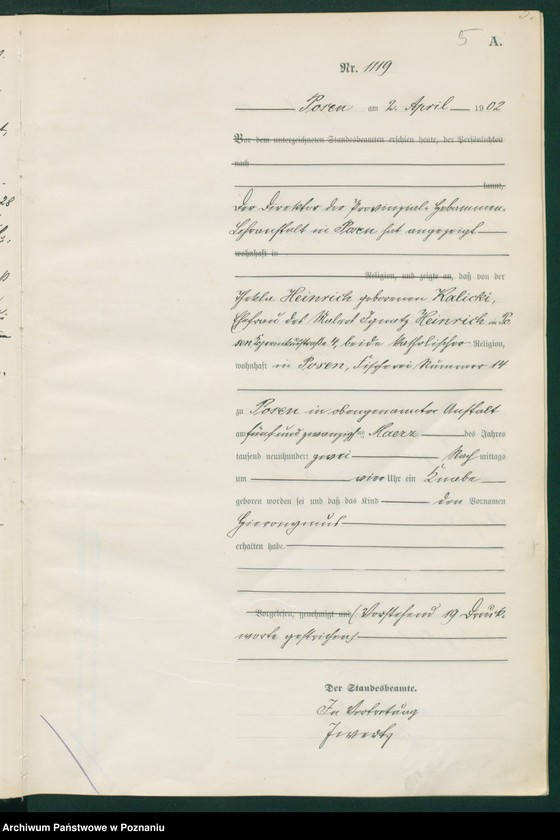 5 A.
Nr. 1119
Posen am 2. April 1902
Vor dem unterzeichneten Standesbeamten erschien heute, der Persönlichkeit
nach
kannt,
Der Direktor der Provinzial-Hebammen-
Lehranstalt in Posen hat angezeigt
wohnhaft in
Religion, und zeigte an, daß von der
Thekla Heinrich geborenen Kalicki,
Ehefrau des Malers Ignatz Heinrich in Po-
sen 4, beide katholischer Religion,
wohnhaft in Posen, Fischerei Nummer 14
zu Posen in obengenannter Anstalt
am fünfundzwanzigsten Maerz des Jahres
tausend neunhundert zwei Nachmittags
um vier Uhr ein Knabe
geboren worden sei und daß das Kind den Vornamen
Hieronymus
erhalten habe.
Vorgelesen, genehmigt und (Vorstehend 19 Druck-
worte gestrichen)
Der Standesbeamte.
In Vertretung
Archiwum Państwowe w Poznaniu